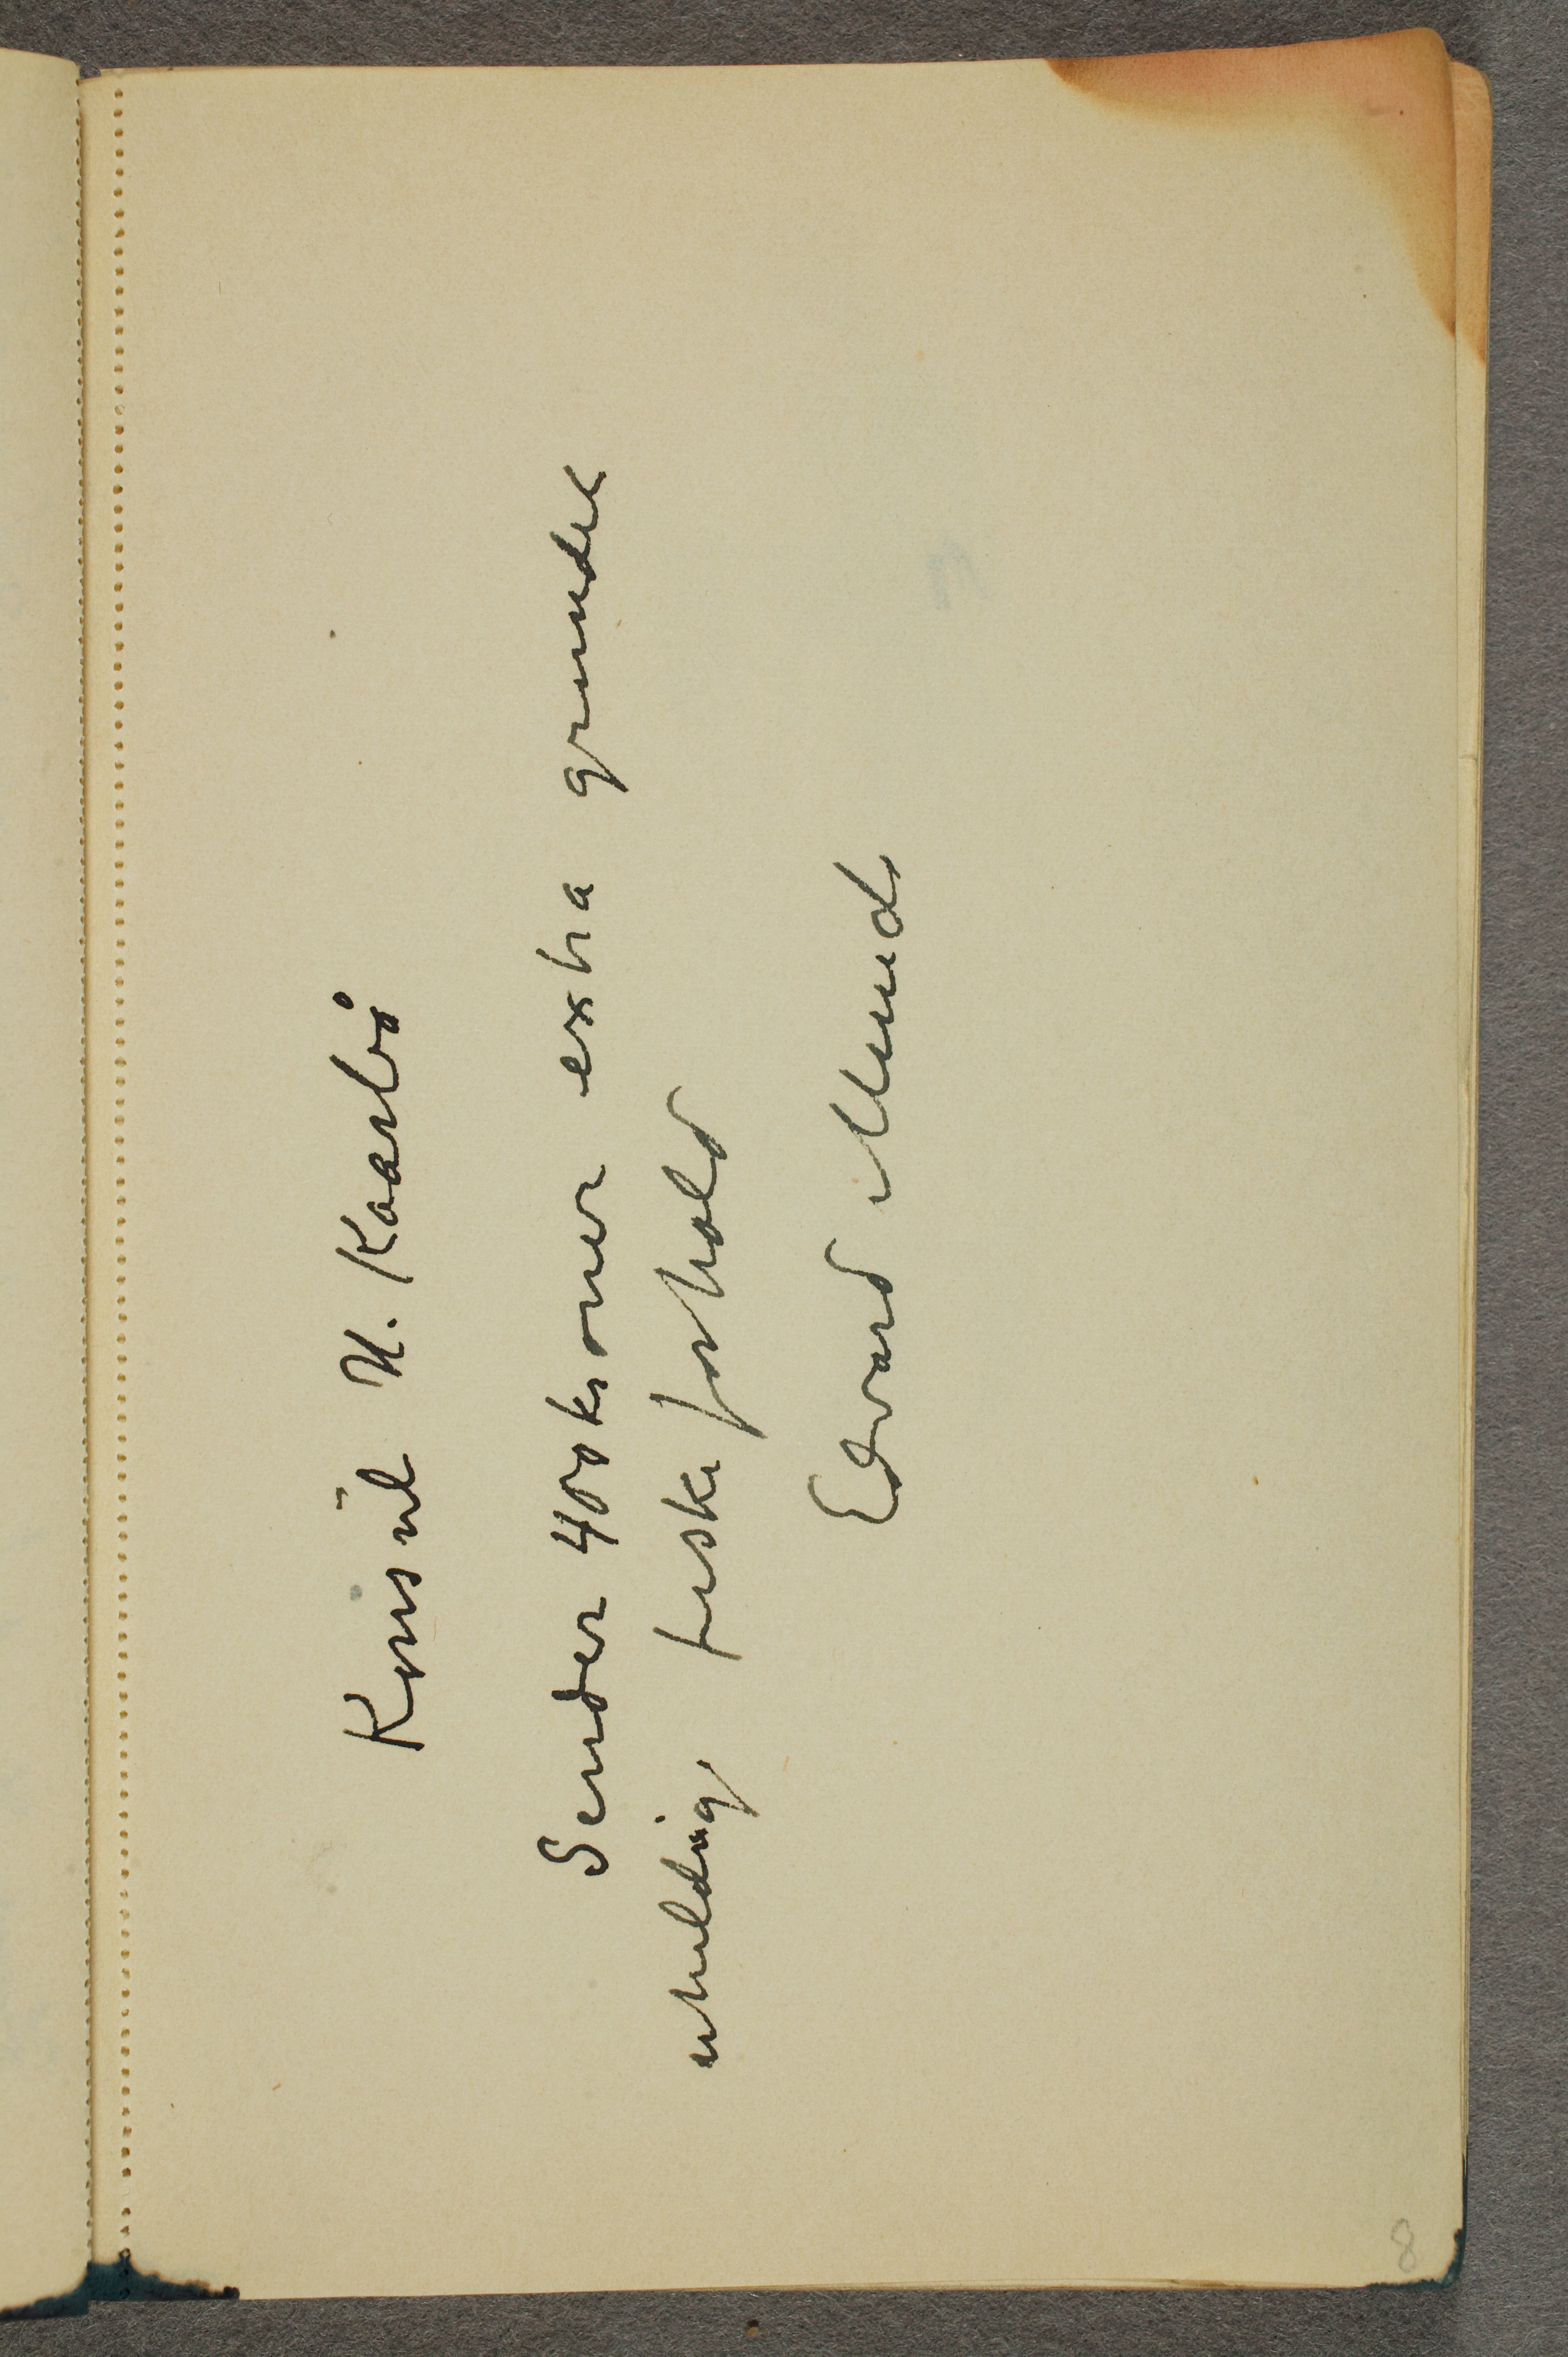 Konsül H. Kaarbö
Sender 400 kroner extra grundet
uheldige fiskeforhold
Edvard Munch
8